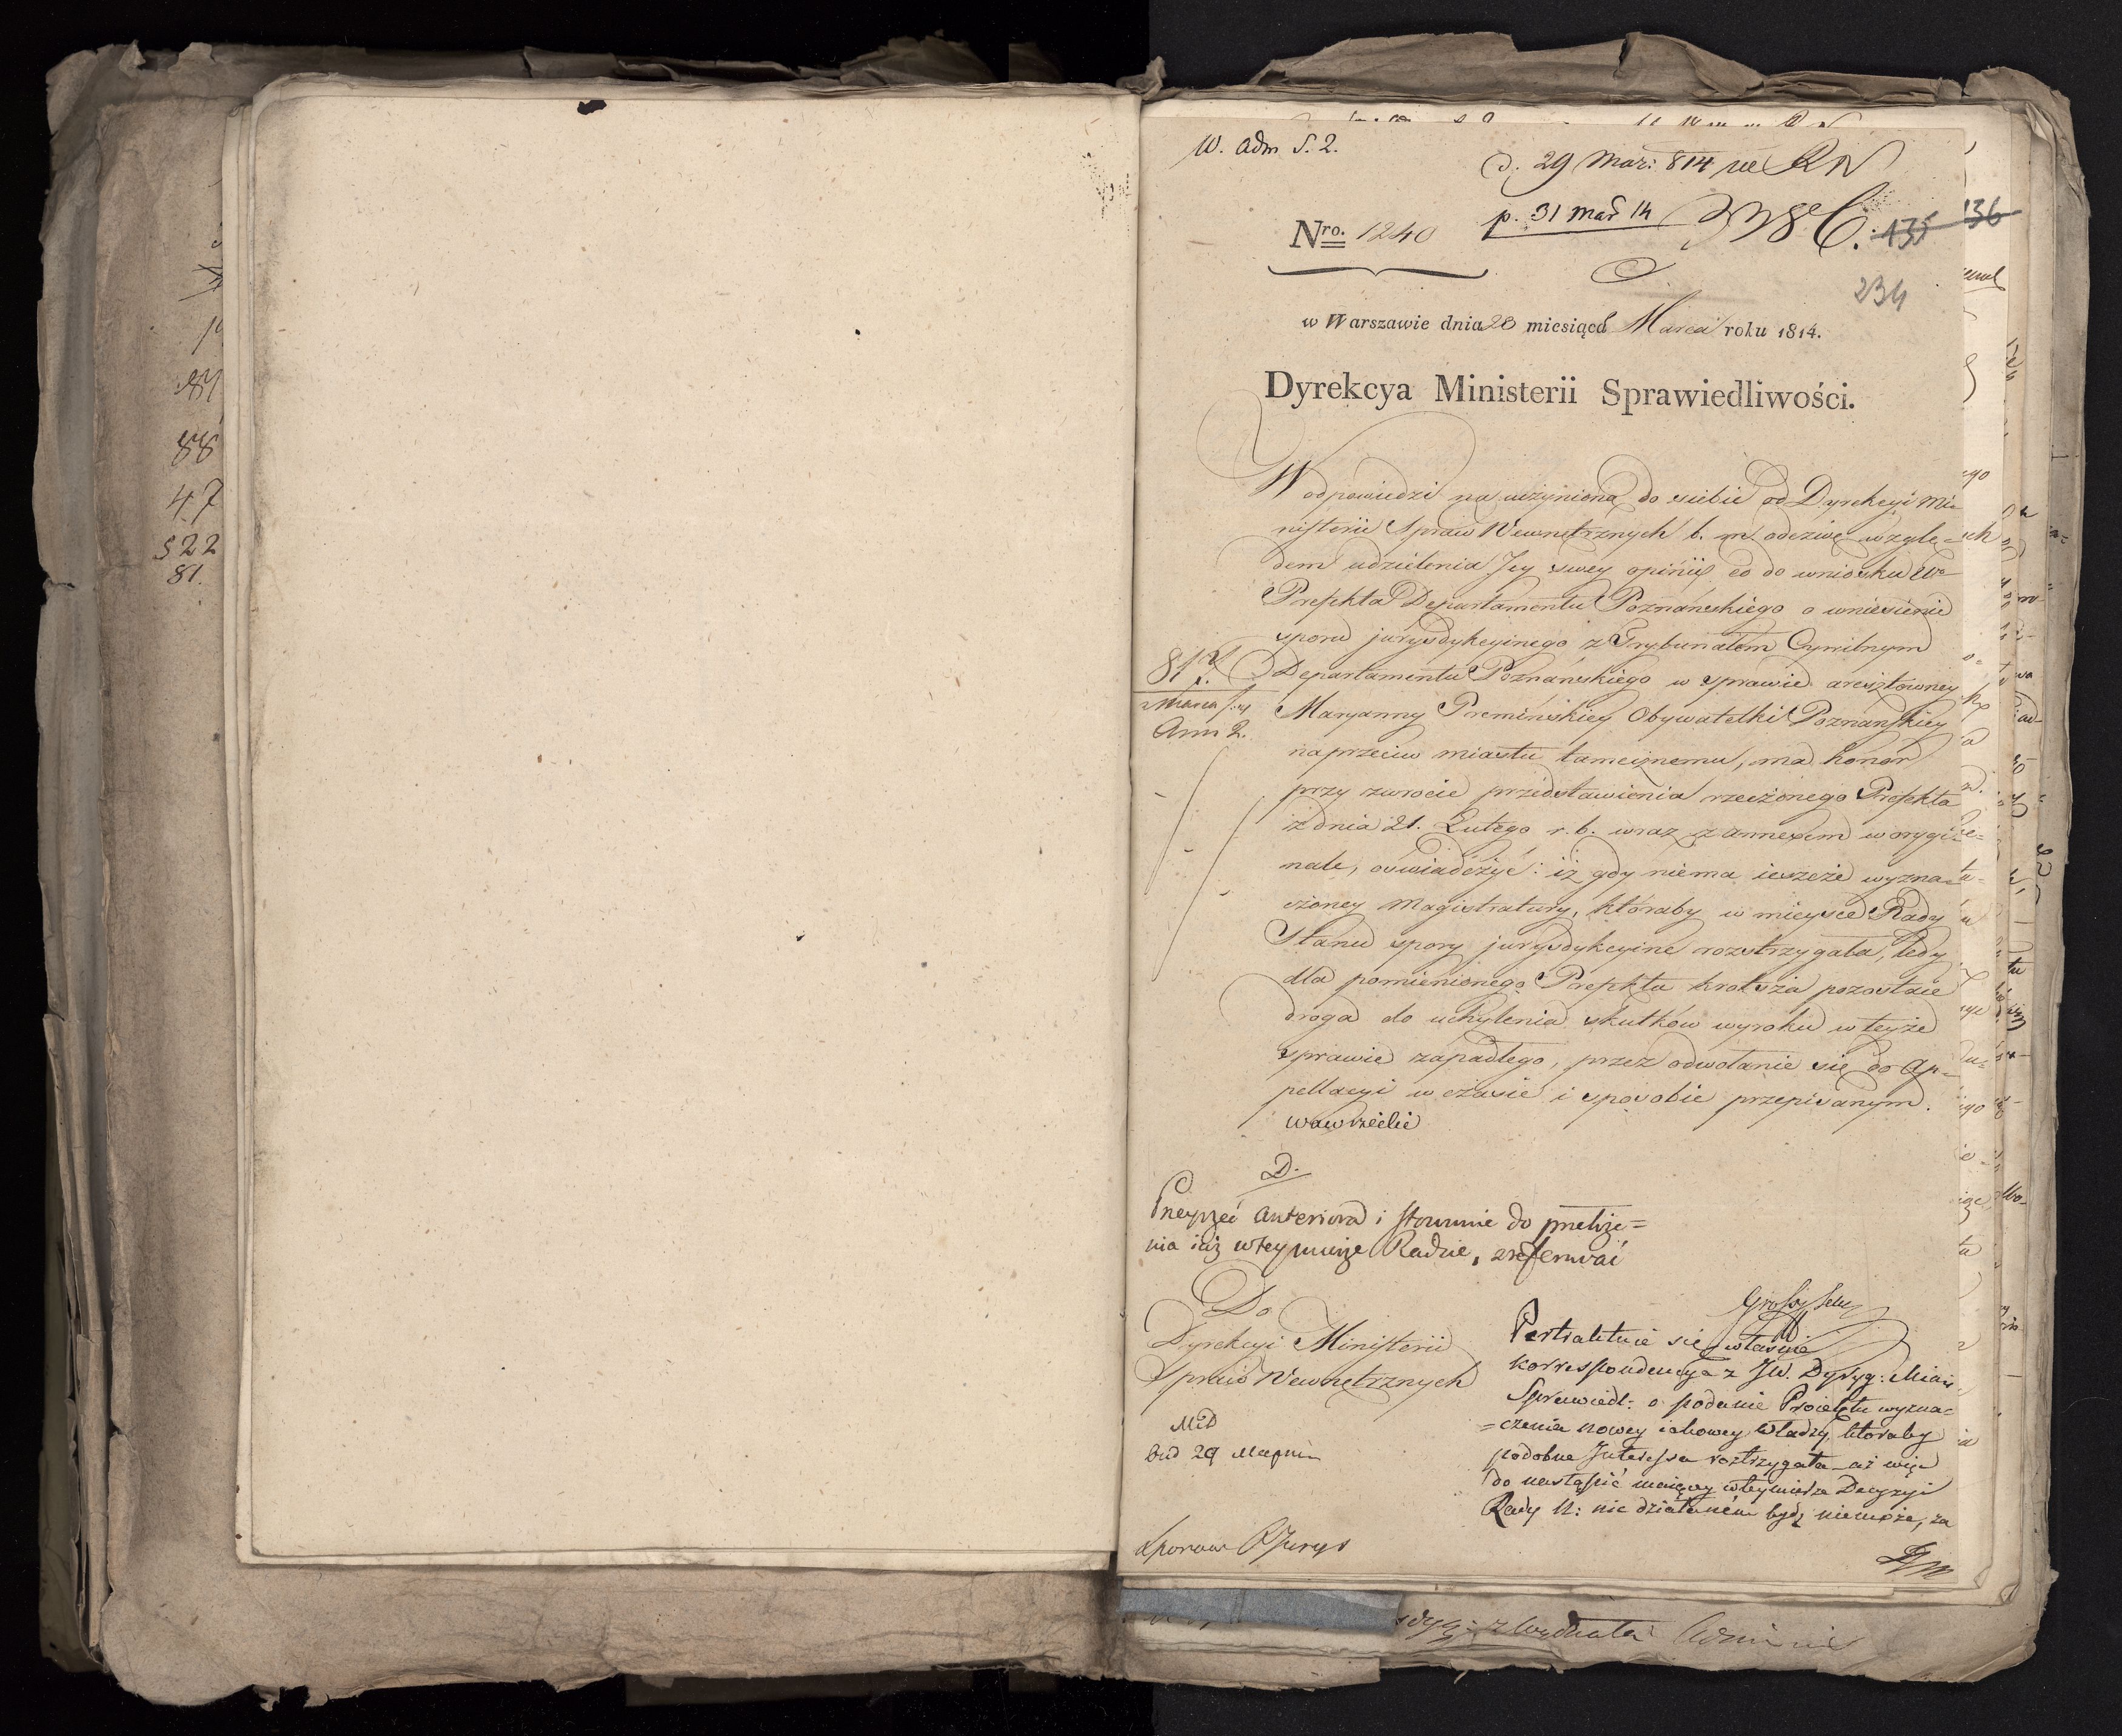 W. adm S. 2.
d. 29 Mar: 814 
p. 31 Mar 14
Nro. 1240
135 136
234
w Warszawie dnia 28 miesiąca Marca roku 1814.
Dyrekcya Ministerii Sprawiedliwości.
W odpowiedzi na uczynioną do siebie od Dyrekcyi Mi-
nisterii Spraw Wewnętrznych b. m. odezwę wzglę-
dem udzielenia Jey swey opinii co do wniosku
Prefekta Departamentu Poznańskiego o wniesienie
sporu jurysdykcyinego z Trybunałem Cywilnym
Departamentu Poznańskiego w sprawie aresztowney
Maryanny Premińskiey Obywatelki Poznańskiey
naprzeciw miastu tameznemu, ma honor
przy zwrocie przedstawienia rzeczonego Prefekta
z dnia 21. Lutego r. b. wraz z annexem w orygi-
nale, oświadczyć: iż gdy niema ieszcze wyzna-
czoney Magistratury, któraby w mieysce Rady
Stanu spory jurysdykcyine rozstrzygała, tedy
dla pomienionego Prefekta krotsza pozostaie
droga do uchylenia skutków wyroku w teyże
sprawie zapadłego, przez odwołanie się do ap-
pellacyi w czasie i sposobie przepisanym.
817
Marca
Ann 2.
D.
Przeyrzeć anteriora i stosownie do
nia iuż w tey mierze Radzie, zreferować
Do
Dyrekcyi Ministerii
Spraw Wewnętrznych
29
Pertraktuie się właśnie
korrespondencya z JW. Dyryg: Minis
Sprawiedl: o podanie Proiektu wyzna-
=czenia nowey iakowey Władzy, któraby
podobne Interessa roztrzygała aż więc
do nastąpić maiącey w tey mierze Decyzyi
Rady N: nic działanem bydź niemoże, za